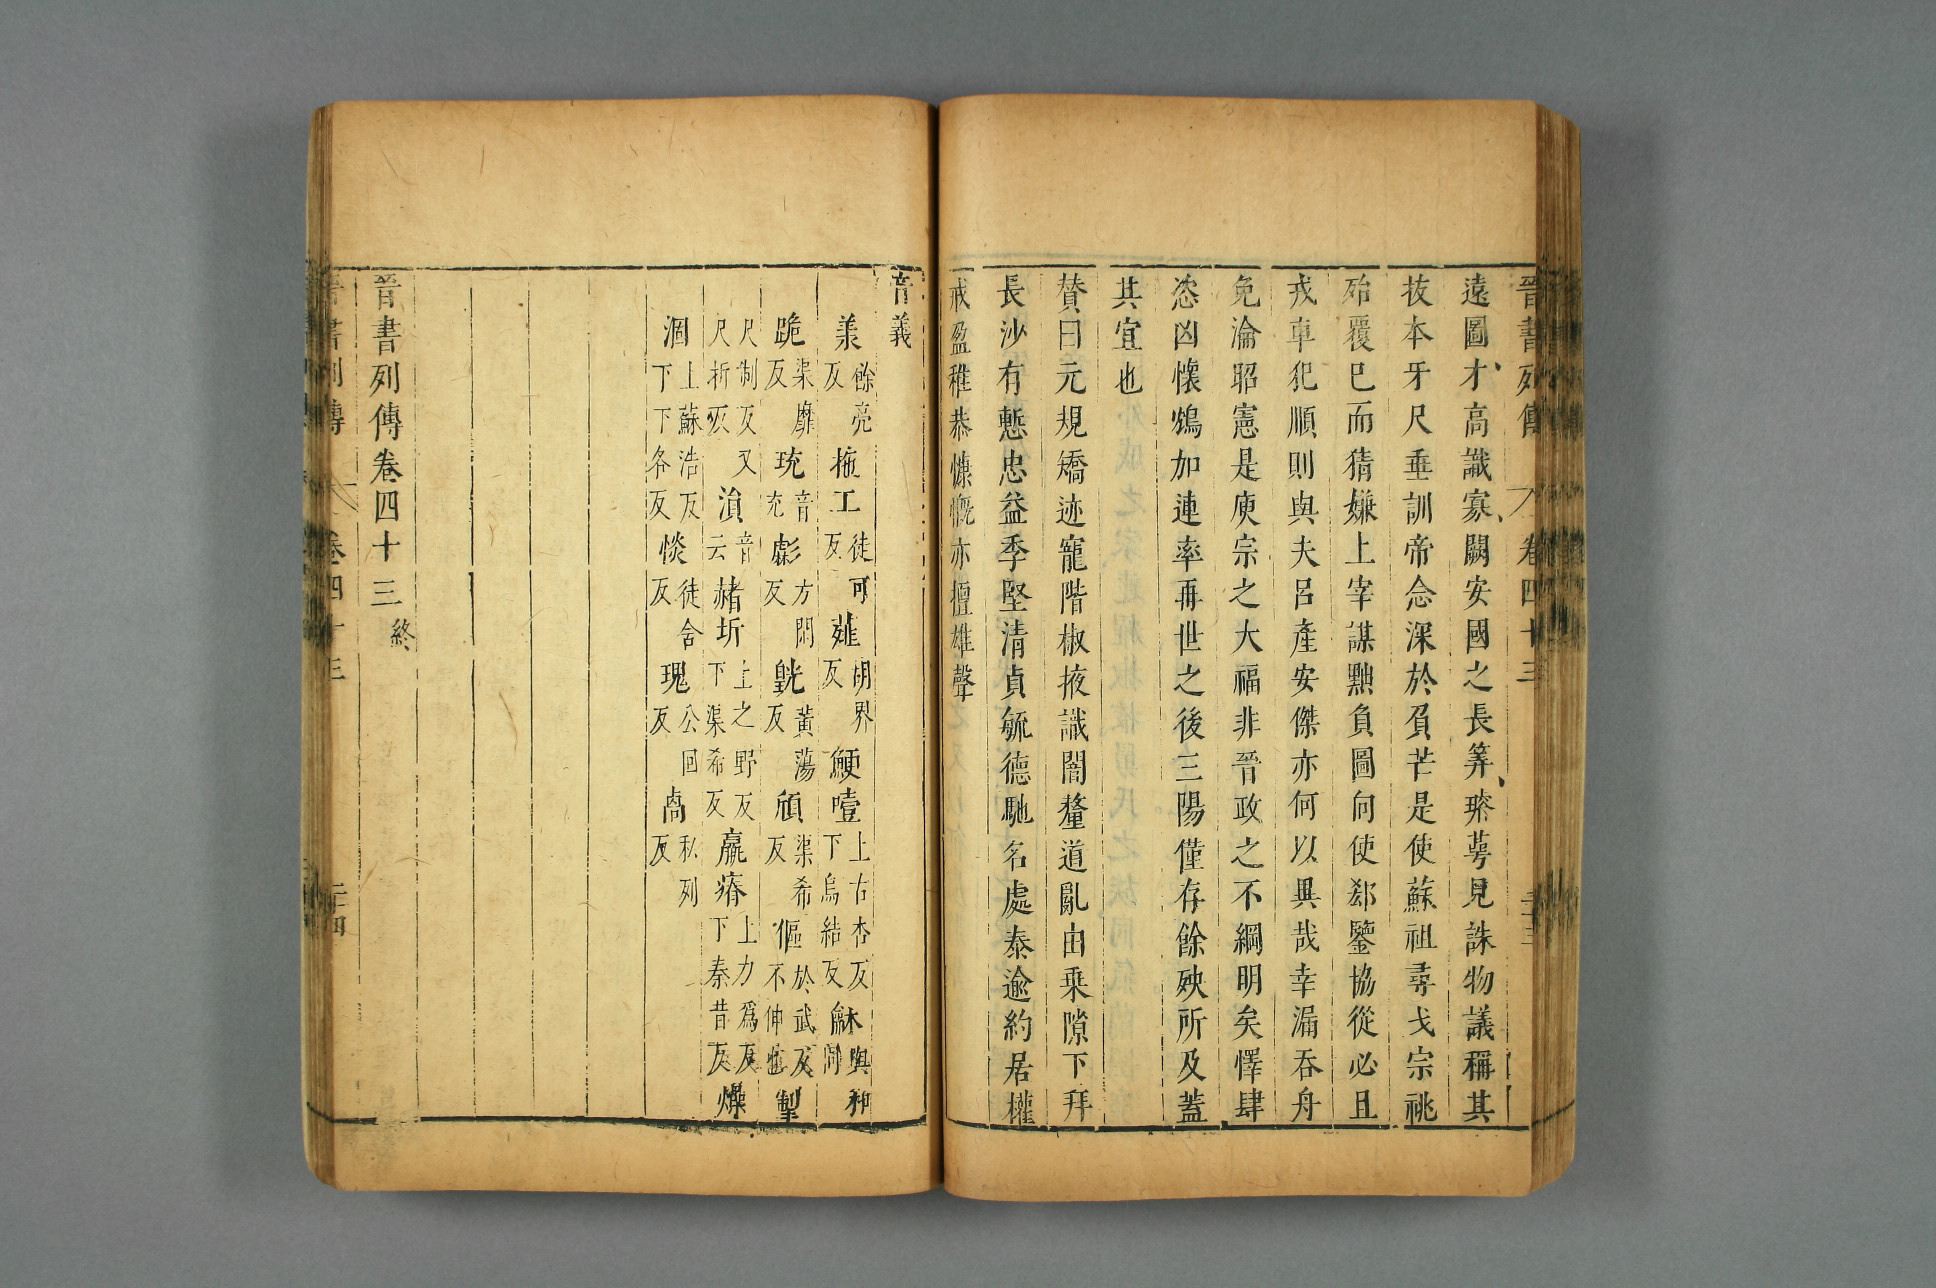 晉書列傳 卷四十三 二十三
遠圖才高識寡闕安國之長筭璨萼見誅物議稱其
拔本牙尺垂訓帝念深於負芒是使蘇祖尋戈宗祧
殆覆已而猜嫌上宰謀黜負圖向使郄鑒協從必且
戎車犯順則與夫呂產安傑亦何以異哉幸漏吞舟
免淪昭憲是庾宗之大福非晉政之不綱明矣懌肆
恣凶懷鴆加連率再世之後三陽僅存餘殃所及蓋
其宜也
賛曰元規矯迹寵階椒掖識闇釐道亂由乗隙下拜
長沙有慙忠益季堅清貞毓德馳名處泰逾約居權
戒盈稚恭慷慨亦擅雄聲
音義
羕餘亮反 拖工徒可反 薤胡界反 鯁噎上古杏反下烏結反 龢與和同
跪渠靡反 珫音充 虨方閑反 㿠黃蕩反 頎渠希反 傴於武反不伸也 掣
尺制反又尺折反 溳音云 赭圻上之野反下渠希反 羸瘠上力爲反下秦昔反 燥
涸上蘇浩反下下各反 惔徒含反 瑰公回反 卨私列反
晉書列傳卷四十三終
晉書列傳 卷四十三 二十四